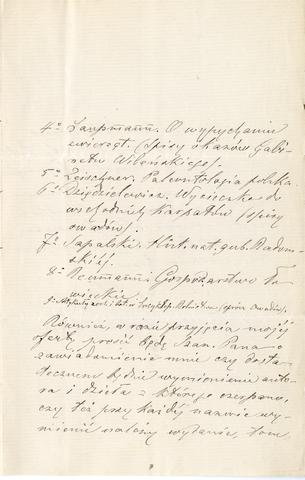 4° Laupmann. O wypychaniu
zwierząt. (Spisy okazów Gabi-
netu Wileńskiego).
5° Zeischner. Paleontologia polska.
6° Dziędzielewicz. Wycieczka do
wschodnich Karpatów (spisy
owadów).
7° Sapalski. Hist. nat. gub. Radom-
skiéj.
8° Neumann: Gospodarstwo Ło-
wieckie.
9° Artykuły Encyklop. Rolnictwa (oprócz owadów).
Również, w razie przyjęcia mojéj
oferty, prosić będę Szan. Pana o
zawiadomienie mnie czy dosta-
tecznem będzie wymienienie auto-
ra i dzieła z którego czerpano,
czy też przy każdéj nazwie wy-
mienić należy wydanie, tom,